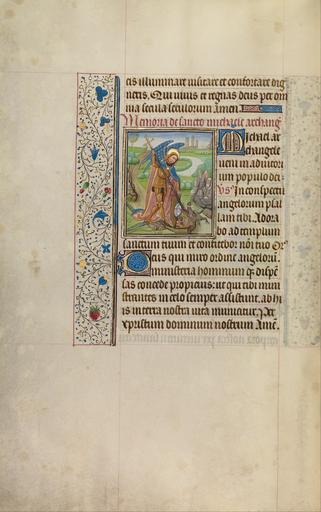 tis illuminare uisitare et confortare dig
neris. Qui uiuis et regnas deus per om
nia secula seculorum amen.
Memoria de sancto michaele archang
Michael ar
changele
ueni in adiutori
um populo dei.
Vs In conspectu
angelorum psal
lam tibi. Adora
bo ad templum
sanctum tuum et confitebor noi tuo Or
Deus qui miro ordine angeloru
ministeria hominum q dispe
sas concede propicius: ut qui tibi mini
strantes in celo semper assistunt. ab hi
is in terra nostra uita muniatur. Per
xpristum dominum nostrum Ame.